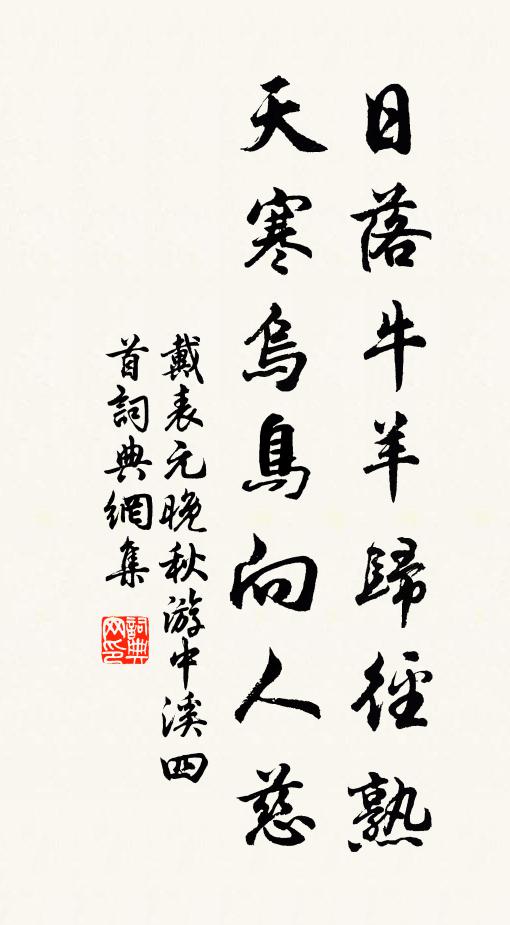 日落牛羊歸徑熟
天寒烏鳥向人慈
戴表元晚秋游中溪四
首詞典網集
詞典
网印